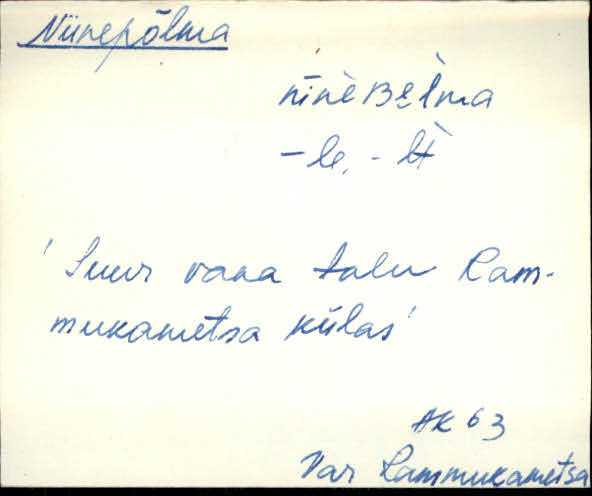 Niinepõlma
nīnèBèlma
-le, -lt
'Suur vana talu Ram-
mukametsa külas'
AK 63
Var Rammukametsa